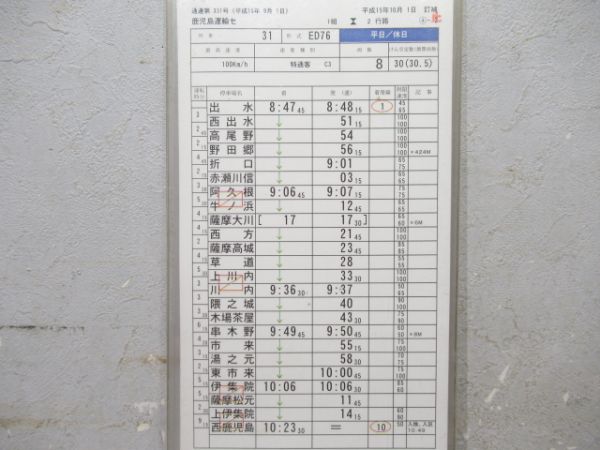 達達第 331号(平成15年 9月 1日)
平成15年10月 1日 訂補
鹿児島運輸セ
1組 2 行路
列車 31 形式 ED76 平日/休日
最高速度 速度種別 両数 けん引定数(換算両数)
100Km/h 特通客 C3 8 30(30.5)
運転時分 停車場名 着 発(通) 着発線 制限速度 記事
出水 8:47 45 8:48 15 1 45 65
3 西出水 ↓ 51 15 100 100
2 45 高尾野 ↓ 54 100 100
2 15 野田郷 ↓ 56 15 100 100 ×424M
折口 ↓ 9:01 65 65
赤瀬川信 ↓ 03 15 65 75
阿久根 9:06 45 9:07 15 75 75
牛ノ浜 ↓ 12 45 65 65
薩摩大川 [ 17 17 30 ] 65 60 ×6M
西方 ↓ 21 45 100 100
薩摩高城 ↓ 23 45 65 65
草道 ↓ 28 55 55
上川内 ↓ 33 30 100 100
川内 9:36 30 9:37
隈之城 ↓ 40
木場茶屋 ↓ 43 30
串木野 9:49 45 9:50 45 ×8M
市来 ↓ 55 15 75 100
湯之元 ↓ 58 30
東市来 ↓ 10:00 45 75 100
伊集院 10:06 10:06 30 85 60
薩摩松元 ↓ 11 45
上伊集院 ↓ 14 15 60 90
9 15 西鹿児島 10:23 30 = 10 50 入換、入区 10:49